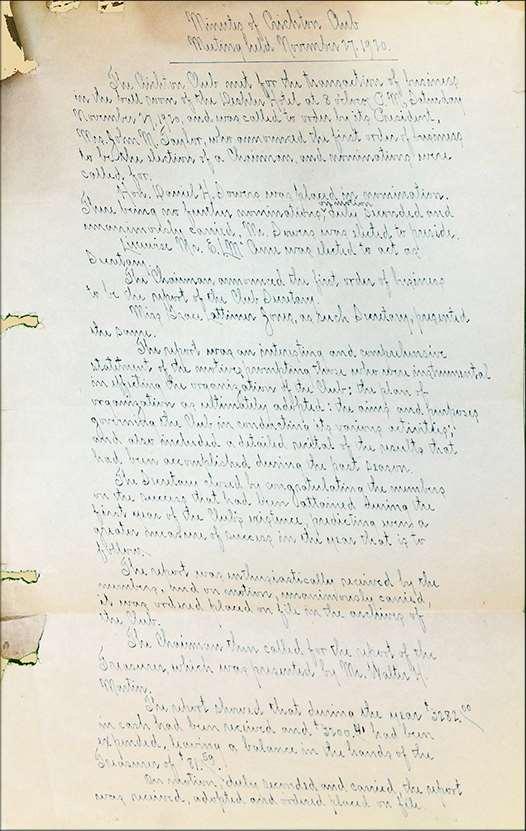 Minutes of Crichton Club
Meeting held November 27, 1920.
The Crichton Club met for the transaction of business
in the ball room of the Deshler Hotel at 8 o'clock P.M. Saturday
November 27, 1920, and was called to order by its President,
Mrs. John M. Taylor, who announced the first order of business
to be the election of a Chairman, and nominations were
called for.
Hon. Daniel H. Sowers was placed in nomination.
There being no further nominations, on motion duly seconded and
unanimously carried, Mr. Sowers was elected to preside.
Likewise Mr. E. was elected to act as
Secretary.
The Chairman announced the first order of business
to be the report of the Club Secretary.
Miss Grace Latimer Jones, as such Secretary, presented
the same.
The report was an interesting and comprehensive
statement of the motives prompting those who were instrumental
in effecting the organization of the Club; the plan of
organization as ultimately adopted; the aims and purposes
governing the Club in conducting its various activities;
and also included a detailed recital of the results that
had been accomplished during the past season.
The Secretary closed by congratulating the members
on the success that had been attained during the
first year of the Club's existence, predicting even a
greater measure of success in the year that is to
follow.
The report was enthusiastically received by the
members, and on motion, unanimously carried,
it was ordered placed on file in the archives of
the Club.
The Chairman then called for the report of the
Treasurer, which was presented by Mr. Walter H.
Martin.
The report showed that during the year $3282.00
in cash had been received and $3200.41 had been
expended, leaving a balance in the hands of the
Treasurer of $81.59.
On motion, duly seconded and carried, the report
was received, adopted and ordered placed on file.